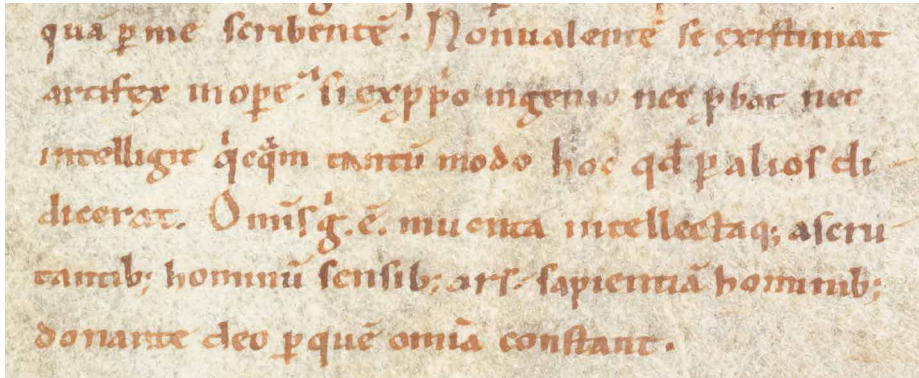 quā ꝑ me scribentē. Nonualentē se existimat
artifex in oꝑe. si exꝓpͥo ingenio nec ꝓbat nec
intelligit qͥcqͣm tantū modo hoc qđ ꝑ alios di
dicerat. Omīs gͥ. ē. inuenta intellectaq; ascru
tantib; hominū sensib; ars. sapientiā hominib;
donante deo ꝑ quē omīa constant.